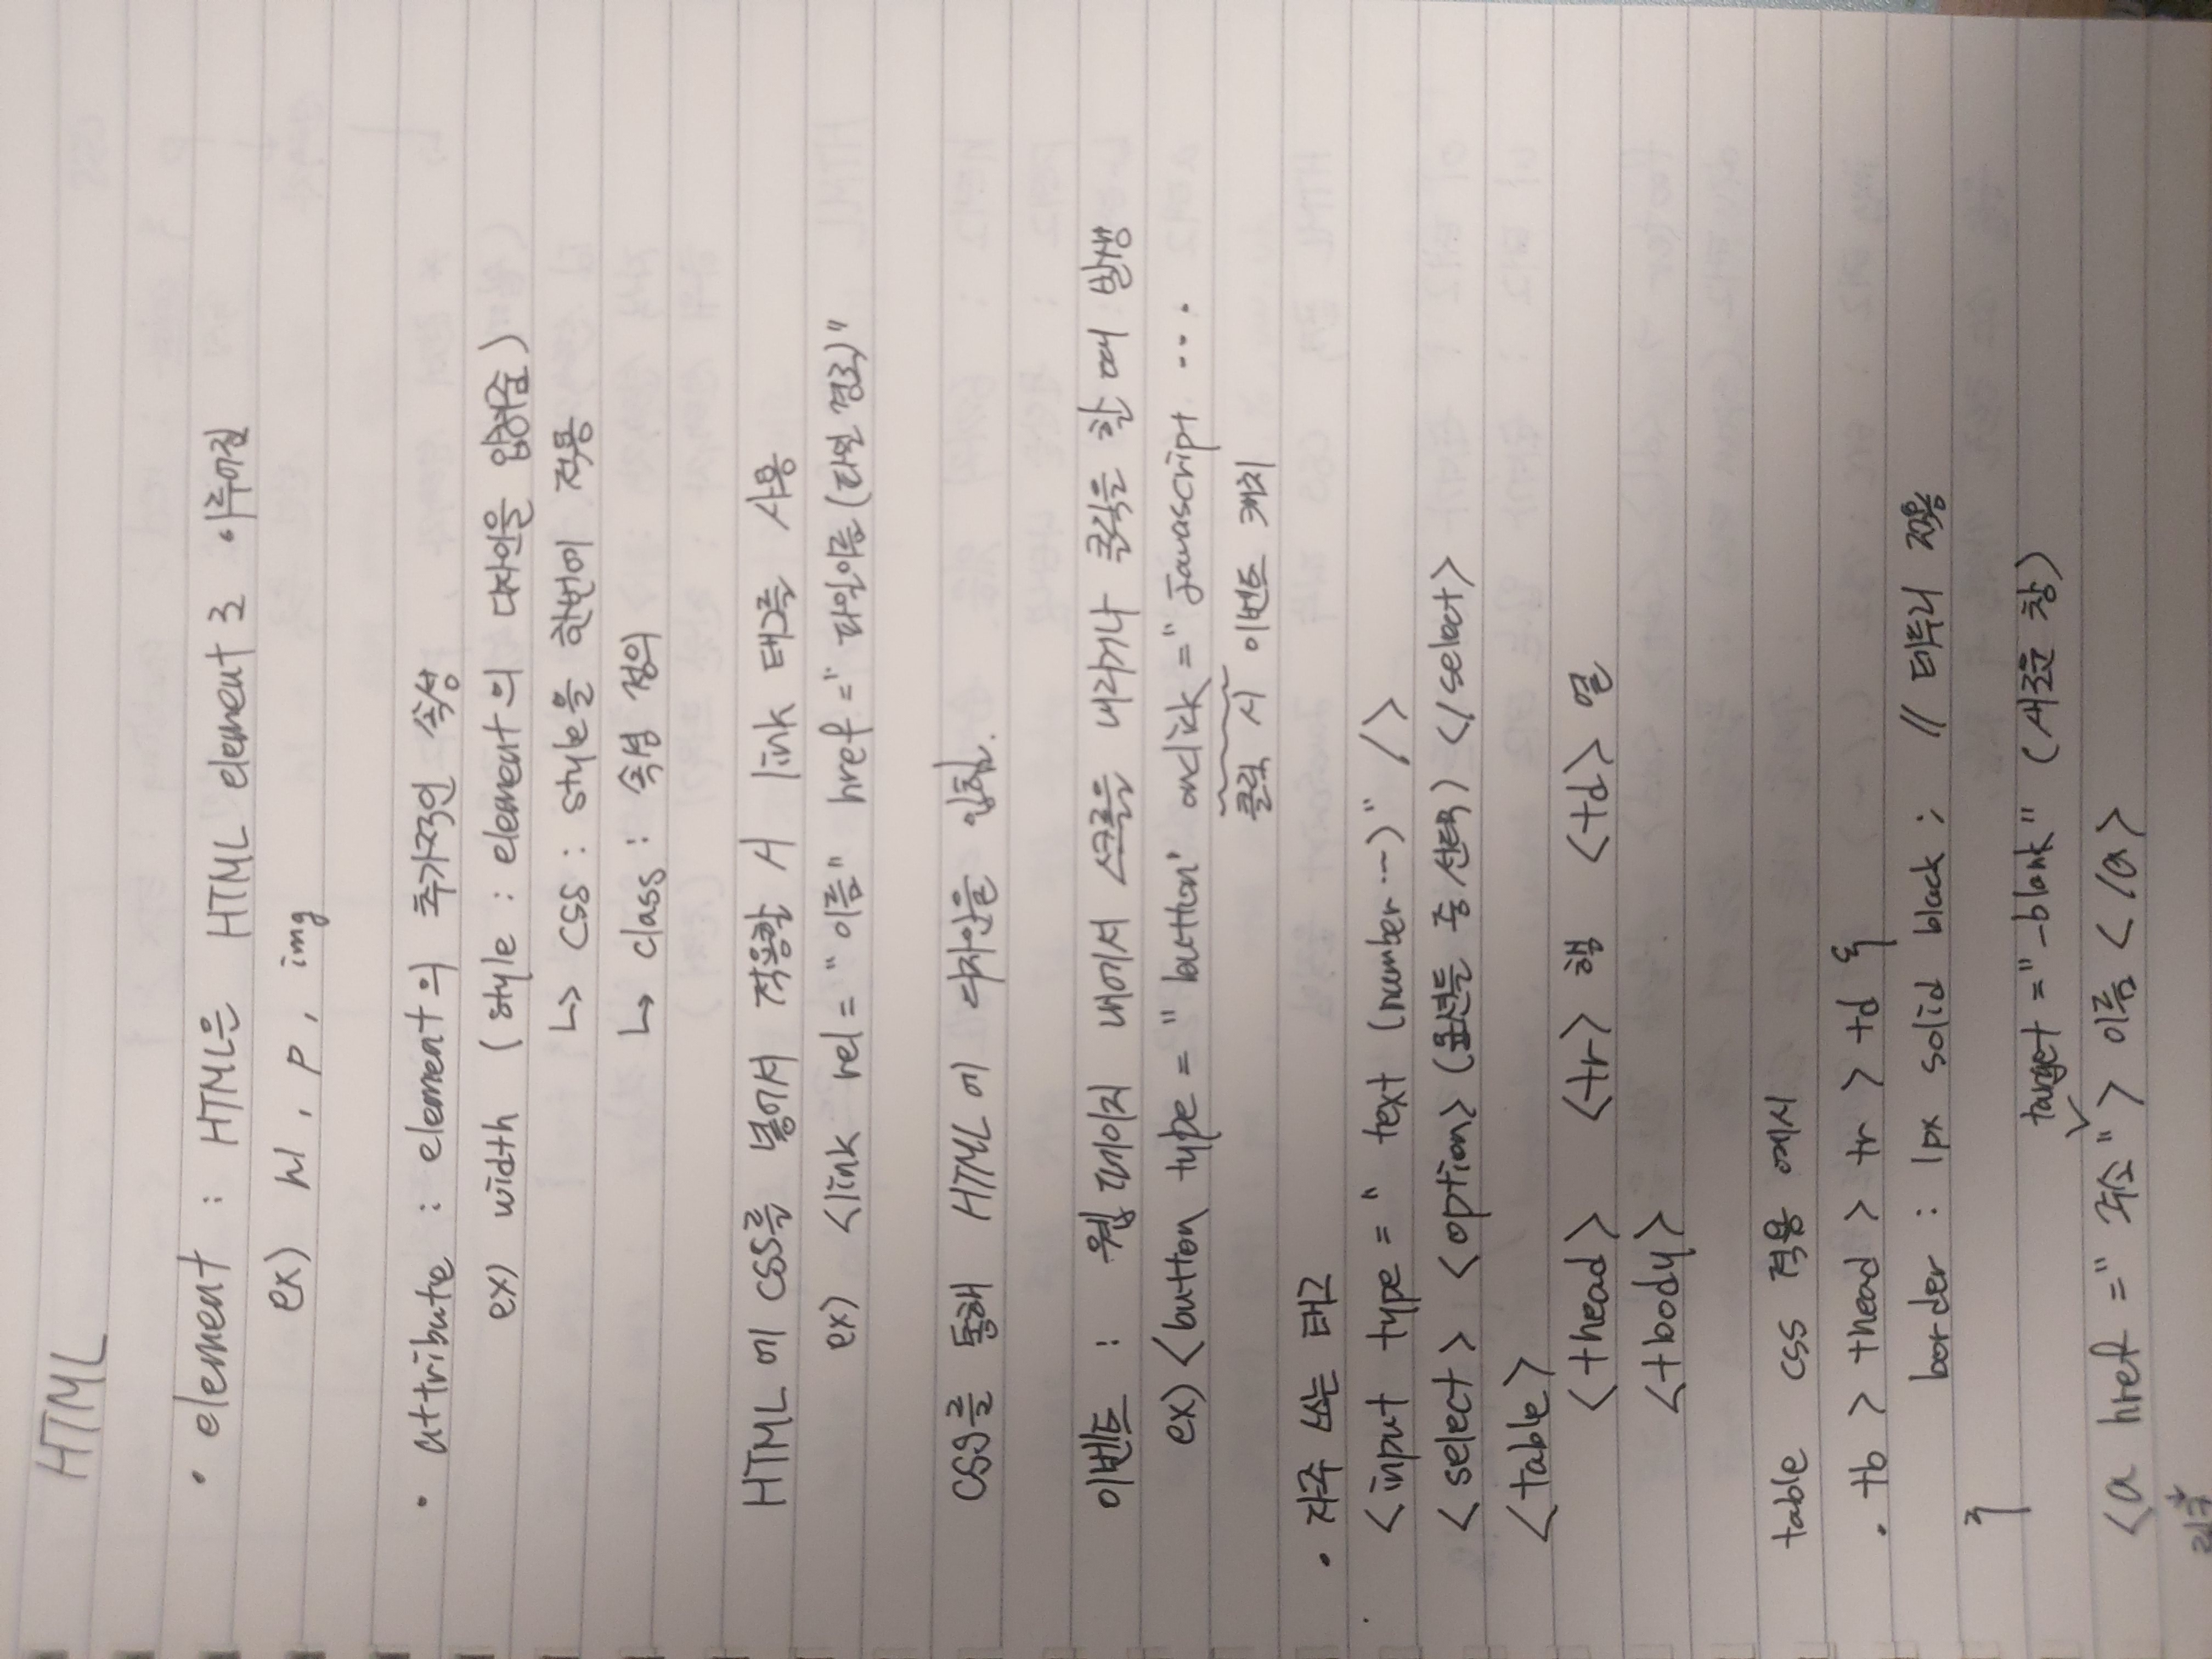 HTML
• element : HTML은 HTML element로 이루어짐
ex) h1, p, img
• attribute : element의 추가적인 속성
ex) width (style : element의 디자인을 입혀줌)
↳ css : style을 한번에 적용
↳ class : 속성 정의
HTML에 CSS를 넣어서 적용할 시 link 태그를 사용
ex) <link rel = "이름" href = "파일이름(파일 경로)"
CSS를 통해 HTML에 디자인을 입힘.
이벤트 : 웹페이지 내에서 스크롤을 내리거나 클릭을 할 때 발생
ex) <button type = "button' onclick = "javascript ...
클릭 시 이벤트 캐치
• 자주 쓰는 태그
<input type = " text (number ...)" />
<select> <option> (옵션들 중 선택) </select>
<table>
<thead> <tr> 행 <td> 열
<tbody>
table css 적용 예시
. tb > thead > tr > td {
border : 1px solid black ; // 테두리 적용
}
target = "_blank" (새로운 창)
<a href = " 주소 "> 이름 </a>
링크